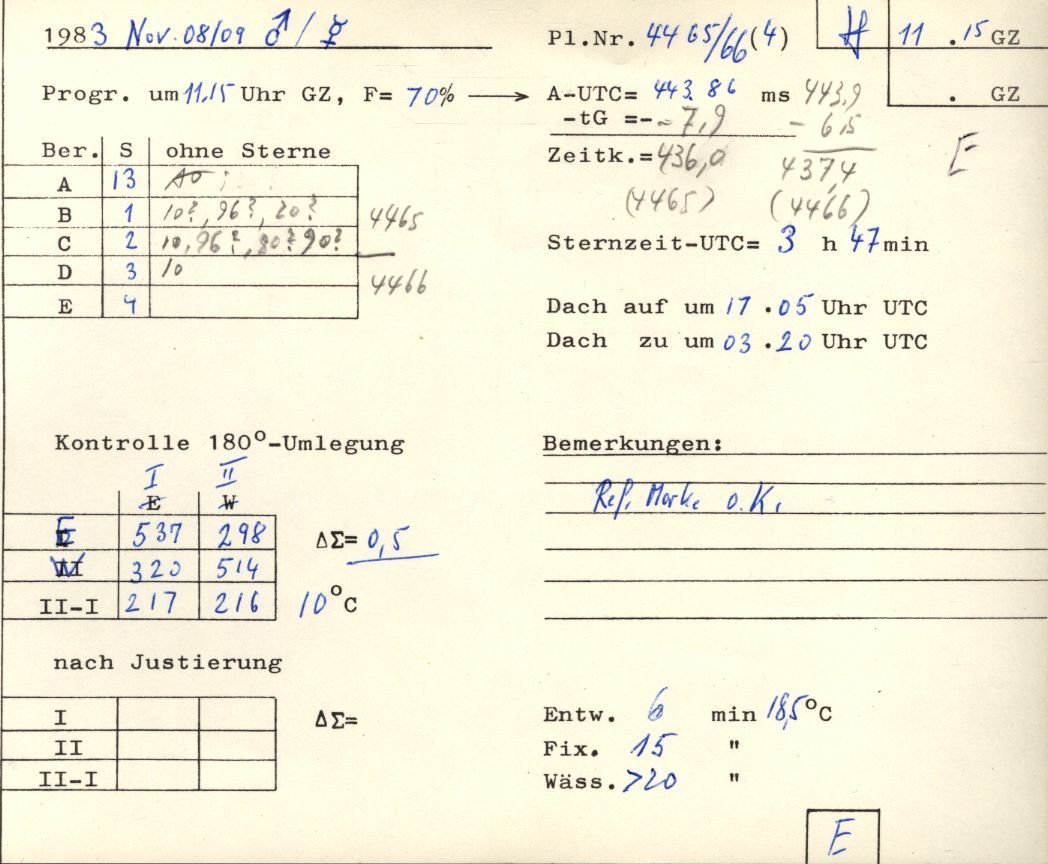 1983 Nov. 08/09 ♂ / ☿ Pl.Nr. 4465/66(4) # 11 .15 GZ
Progr. um 11.15 Uhr GZ, F= 70% → A-UTC= 443.86 ms 443,9 . GZ
-tG =- -7,9 - 6,5
Ber. S ohne Sterne Zeitk.=436,0 437,4 E
A 13
(4465) (4466)
B 1 10?, 96?, 20? 4465
C 2 10, 96?, 80? 90? Sternzeit-UTC= 3 h 47min
D 3 10 4466
E 4
Dach auf um 17 .05 Uhr UTC
Dach zu um 03 .20 Uhr UTC
Kontrolle 180°-Umlegung Bemerkungen:
I II
E W Ref. Marke o.K.
E 537 298 ΔΣ= 0,5
W 320 514
II-I 217 216 10°C
nach Justierung
I ΔΣ= Entw. 6 min 18,5°C
II Fix. 15 "
II-I Wäss. >20 "
E